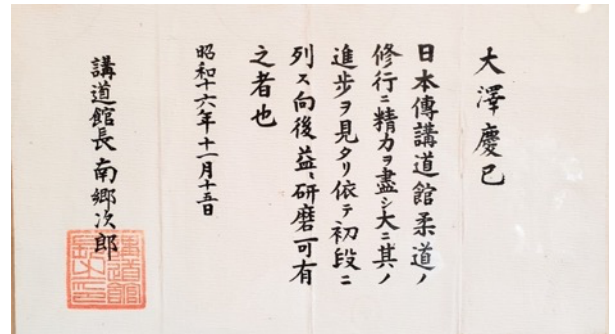 大澤慶己
日本傳講道館柔道ノ
修行ニ精力ヲ盡シ大ニ其ノ
進歩ヲ見タリ依テ初段ニ
列ス向後益〻研磨可有
之者也
昭和十六年十一月十五日
講道館長南郷次郎
講道館長之印